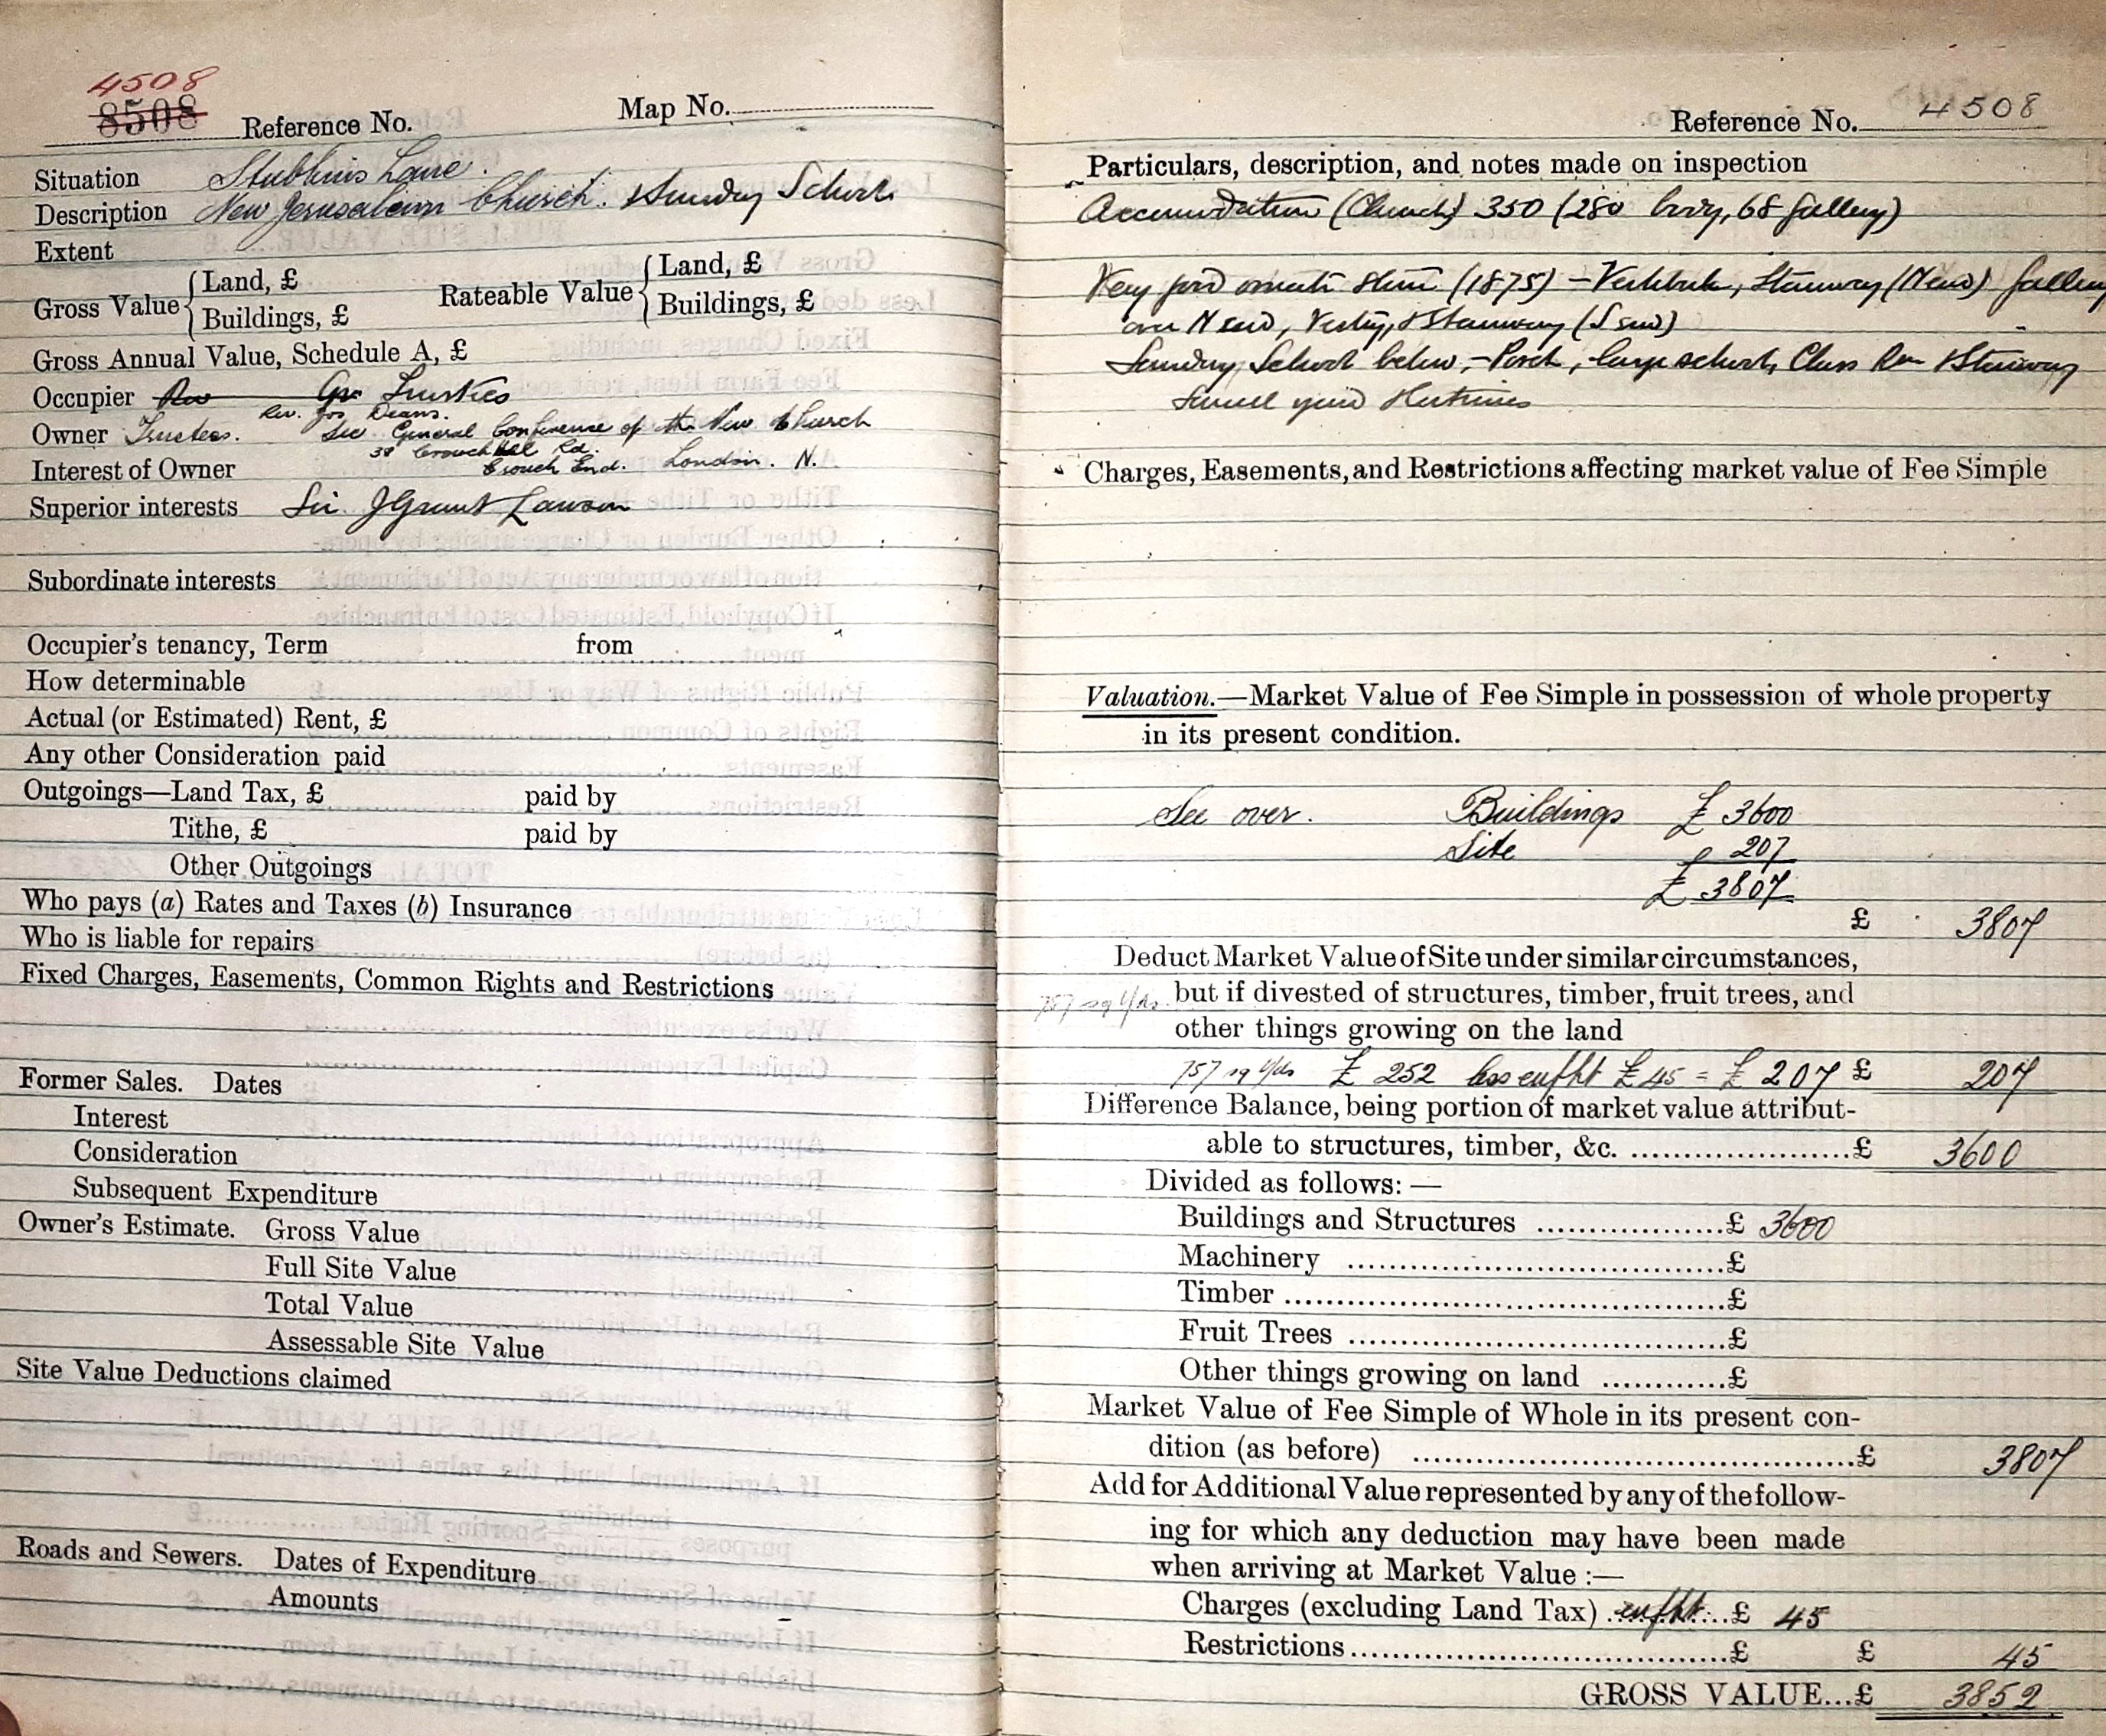 4508
8508 Reference No. Map No.
Situation Stubbins Lane.
Description New Jerusalem Church. & Sunday School
Extent
Gross Value { Land, £ Rateable Value { Land, £
Buildings, £ Buildings, £
Gross Annual Value, Schedule A, £
Occupier Rev Trustees
Rev. Jos Deans.
Owner Trustees. Sec General Conference of the New Church
38 Crouch Hall Rd.
Interest of Owner Crouch End. London. N.
Superior interests Sir J Grant Lawson
Subordinate interests
Occupier's tenancy, Term from
How determinable
Actual (or Estimated) Rent, £
Any other Consideration paid
Outgoings—Land Tax, £ paid by
Tithe, £ paid by
Other Outgoings
Who pays (a) Rates and Taxes (b) Insurance
Who is liable for repairs
Fixed Charges, Easements, Common Rights and Restrictions
Former Sales. Dates
Interest
Consideration
Subsequent Expenditure
Owner's Estimate. Gross Value
Full Site Value
Total Value
Assessable Site Value
Site Value Deductions claimed
Roads and Sewers. Dates of Expenditure
Amounts
Reference No. 4508
Particulars, description, and notes made on inspection
Accomodation (Church) 350 (280 body, 68 gallery)
Very good ornate stone (1875) – Vestibule, Stairway (N end) Gallery
over N end, Vestry, & Stairway (S end)
Sunday School below, – Porch, large school, Class Rm & Stairway
Small yard
Charges, Easements, and Restrictions affecting market value of Fee Simple
Valuation.—Market Value of Fee Simple in possession of whole property
in its present condition.
See over. Buildings £ 3600
Site 207
£ 3807
£ 3807
Deduct Market Value of Site under similar circumstances,
757 sq yds. but if divested of structures, timber, fruit trees, and
other things growing on the land
757 sq yds £ 252 less cufht £ 45 = £ 207 £ 207
Difference Balance, being portion of market value attribut-
able to structures, timber, &c. ....................£ 3600
Divided as follows: —
Buildings and Structures ....................£ 3600
Machinery ....................£
Timber ....................£
Fruit Trees ....................£
Other things growing on land ............£
Market Value of Fee Simple of Whole in its present con-
dition (as before) ....................£ 3807
Add for Additional Value represented by any of the follow-
ing for which any deduction may have been made
when arriving at Market Value :—
Charges (excluding Land Tax) cufht £ 45
Restrictions ....................£ £ 45
GROSS VALUE...£ 3852